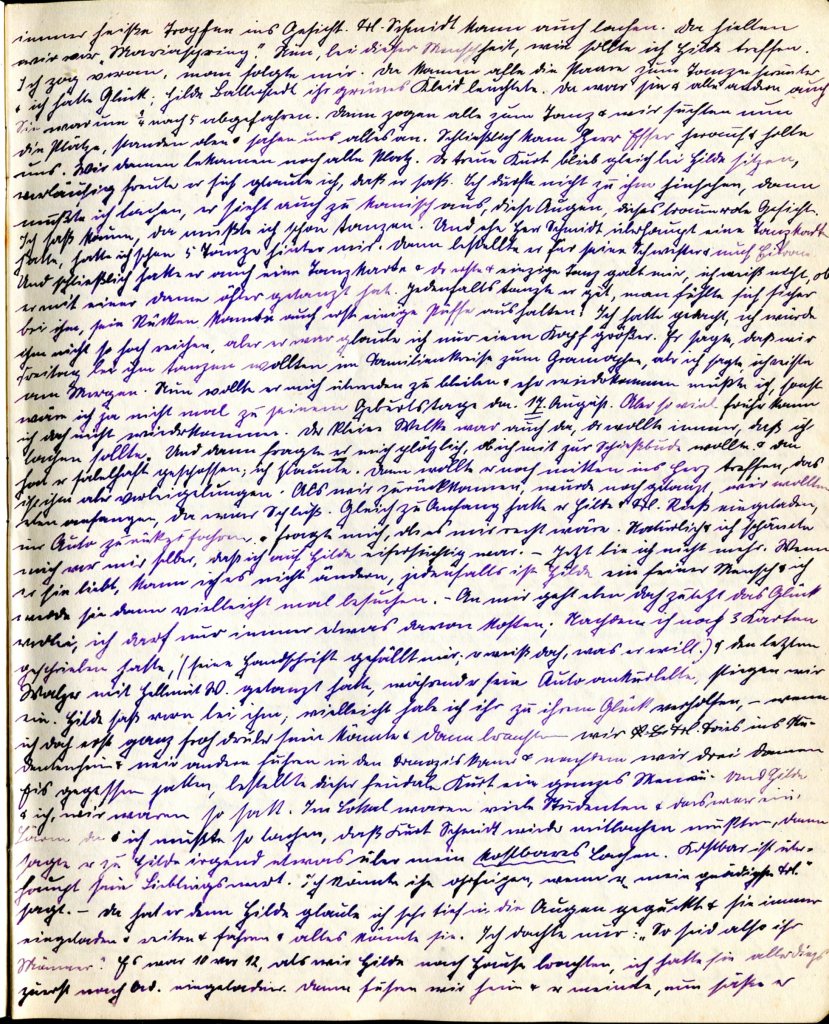 immer heiße Tropfen ins Gesicht. Frl. Schmidt kann auch lachen. Da hielten
wir vor „Mariaspring“ Nun, bei dieser Menschheit, wie sollte ich Hilde treffen.
Ich zog voran, man folgte mir. Da kamen alle die Paare zum Tanze herunter
& ich hatte Glück; Hilde Ballestedt ihr grünes Kleid leuchtete. Da war sie & alle andern auch
Sie war um 4 nach 5 abgefahren. Dann zogen alle zum Tanz & wir suchten nun
die Plätze, standen oben & sahen uns alles an. Schließlich kam Herr Esser herauf & holte
uns. Wir Damen bekamen noch alle Platz. Der treue Kurt blieb gleich bei Hilde sitzen,
vorläufig freute er sich glaube ich, daß er saß. Ich durfte nicht zu ihm hinsehen, denn
mußte ich lachen, er sieht auch zu komisch aus, diese Augen, dieses braunrote Gesicht.
Ich saß kaum, da mußte ich schon tanzen. Und ehe Herr Schmidt überhaupt eine Tanzkarte
hatte, hatte ich schon 5 Tänze hinter mir. Dann bestellte er für seine Schwester & mich
Und schließlich hatte er auch eine Tanzkarte & der erste & einzige Tanz galt mir, ich weiß nicht, ob
er mit einer Dame öfter getanzt hat. Jedenfalls tanzte er gut, man fühlte sich sicher
bei ihm, sein Rücken konnte auch erst einige Püffe aushalten. Ich hatte gedacht, ich würde
ihm nicht so hoch reichen, aber er war glaube ich nur einen Kopf größer. Er sagte, daß wir
Freitag bei ihm tanzen wollten im Familienkreise zum Gramophon, als ich sagte, ich reiste
am Morgen. Nun wollte er mich überreden zu bleiben & eher wiederkommen müßte ich, sonst
wäre ich ja nicht mal zu seinem Geburtstage da. 17. August. Aber so viel früher kann
ich doch nicht wiederkommen. Der kleine Welke war auch da, er wollte immer, daß ich
sagen sollte. Und dann fragte er mich plötzlich, ob ich mit zur Schießbude wollte & da
hat er fabelhaft geschossen; ich staunte. Dann wollte er noch mitten ins Herz treffen, das
ist ihm aber Als wir zurückkamen, wurde noch getanzt, wir wollten
denn anfangen, da war Schluß. Gleich zu Anfang hatte er Hilde & Frl. Rieß eingeladen,
im Auto zurückzufahren & fragte mich, ob es mir recht wäre. Natürlich & ich schämte
mich vor mir selber, daß ich auf Hilde eifersüchtig war. – Jetzt bin ich nicht mehr. Wenn
er sie liebt, kann ich es nicht ändern, jedenfalls ist Hilde ein feiner Mensch & ich
werde sie dann vielleicht mal besuchen. – An mir geht eben doch zuletzt das Glück
vorbei, ich darf nur immer etwas davon kosten; Nachdem ich noch 3 Karten
geschrieben hatte, (seine Handschrift gefällt mir, er weiß doch, was er will.) & den letzten
Walzer mit Hellmut W. getanzt hatte, während er sein Auto ankurbelte, stiegen wir
ein. Hilde saß vorn bei ihm; vielleicht habe ich ihr zu ihrem Glück verholfen, – wenn
ich doch erst ganz froh drüber sein könnte & dann brachten wir Frl. ins Stu-
dentenheim & wir andern fuhren in den Franziskaner & nachdem wir drei Damen
Eis gegessen hatten, bestellte dieser feudale Kurt ein ganzes Menü. Und Hilde
& ich, wir waren so satt. Im Lokal waren viele Studenten & das war ein
Lärm da & ich mußte so lachen, daß Kurt Schmidt wieder mitlachen mußten, dann
sagte er zu Hilde irgend etwas über mein kostbares Lachen. Kostbar ist über-
haupt sein Lieblingswort. Ich könnte ihn ohrfeigen, wenn er „mein gnädiges Frl.“
sagt. – Da hat er denn Hilde glaube ich sehr tief in die Augen geguckt & sie immer
eingeladen & reiten & fahren & alles könnte sie. Ich dachte mir: „So seid also ihr
Männer“. Es war 10 vor 12, als wir Hilde nach Hause brachten, ich hatte sie allerdings
zuerst nach Ad. eingeladen. Dann fuhren wir heim & er meinte, nun säße er